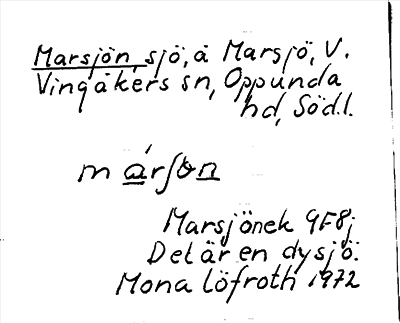 Marsjön, sjö, å Marsjö, V.
Vingåkers sn, Oppunda
hd, Södl.
Marsjönek 9F8j
Det är en dysjö.
Mona Löfroth 1972